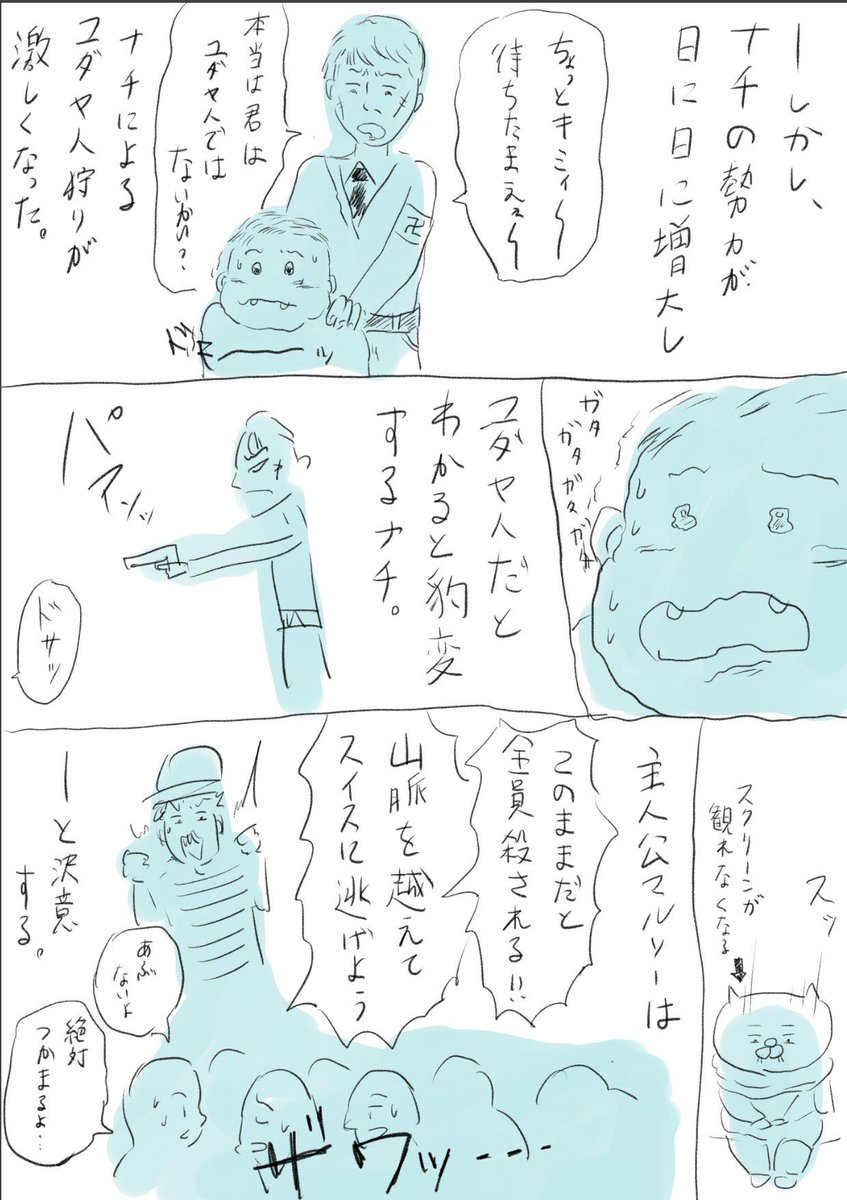 ーしかし、
ナチの勢力が
日に日に増大し
ちょっとキミィ〜
待ちたまえぇ〜
本当は君は
ユダヤ人では
ないかい?
ナチによる
ユダヤ人狩りが
激しくなった。
ガタ
ガタガタガタ
ユダヤ人だと
わかると豹変
するナチ。
パァイソッ
ドサッ
スッ
スクリーンが
観れなくなる
主人公マルソーは
このままだと
全員殺される!!
山脈を越えて
スイスに逃げよう
ーと決意
する。
あぶ
ないよ
絶対
つかまるよ…
ザワッ---